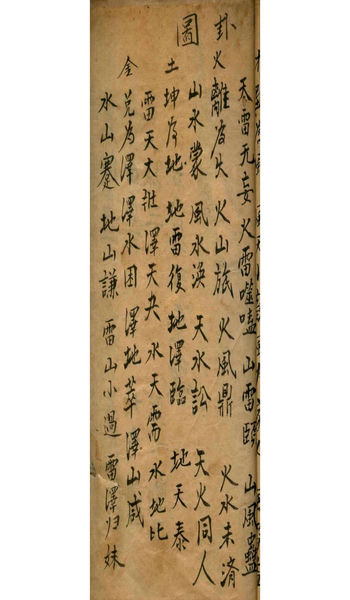 天雷无妄 火雷噬嗑 山雷頤 山風蠱
卦火離為火 火山旅 火風鼎 火水未濟
圖 山水蒙 風水渙 天水訟 天火同人
土坤為地 地雷復 地澤臨 地天泰
雷天大壯 澤天夬 水天需 水地比
金兌為澤 澤水困 澤地萃 澤山咸
水山蹇 地山謙 雷山小過 雷澤归妹